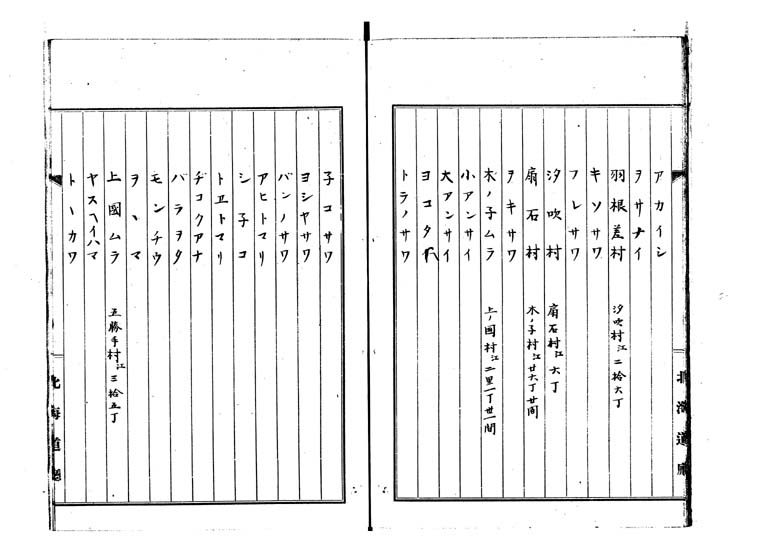 アカイシ
ヲサナイ
羽根差村 汐吹村江二拾六丁
キソサワ
フレサワ
汐吹村 扇石村江六丁
扇石村 木ノ子村江廿六丁廿間
ヲキサワ
木ノ子ムラ 上ノ國村江二里一丁廿一間
小アンサイ
大アンサイ
ヨコタ
トラノサワ
北海道廳
子コサワ
ヨシヤサワ
バンノサワ
アヒトマリ
シ子コ
トヱトマリ
ヂコクアナ
バラヲタ
モンチウ
ヲヽマ
上國ムラ 五勝手村江三拾五丁
ヤスヘイハマ
トヽカワ
北海道廳